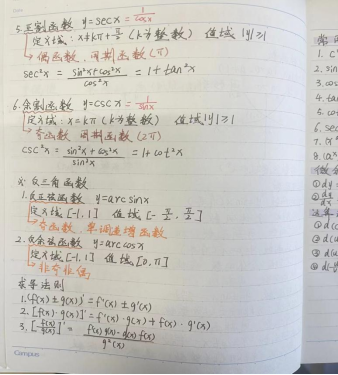 5.正割函数 y=secx=1/cosx
定义域:x≠kπ+π/2 (k为整数) 值域|y|≥1
偶函数,周期函数(π)
sec²x = (sin²x+cos²x)/cos²x = 1+tan²x
6.余割函数 y=cscx=1/sinx
定义域:x=kπ(k为整数) 值域|y|≥1
奇函数,周期函数(2π)
csc²x = (sin²x+cos²x)/sin²x = 1+cot²x
反三角函数
1.反正弦函数 y=arcsinx
定义域[-1,1] 值域[-π/2,π/2]
奇函数,单调递增函数
2.反余弦函数 y=arccosx
定义域[-1,1] 值域[0,π]
非奇非偶
求导法则
1.(f(x)±g(x))'=f'(x)±g'(x)
2.[f(x)·g(x)]'=f'(x)·g(x)+f(x)·g'(x)
Campus
1. C'
2. sin
3. cos
4. ta
5. co
6. sec
7.
8. (a^x
① d(c
② d(u
③ d(u